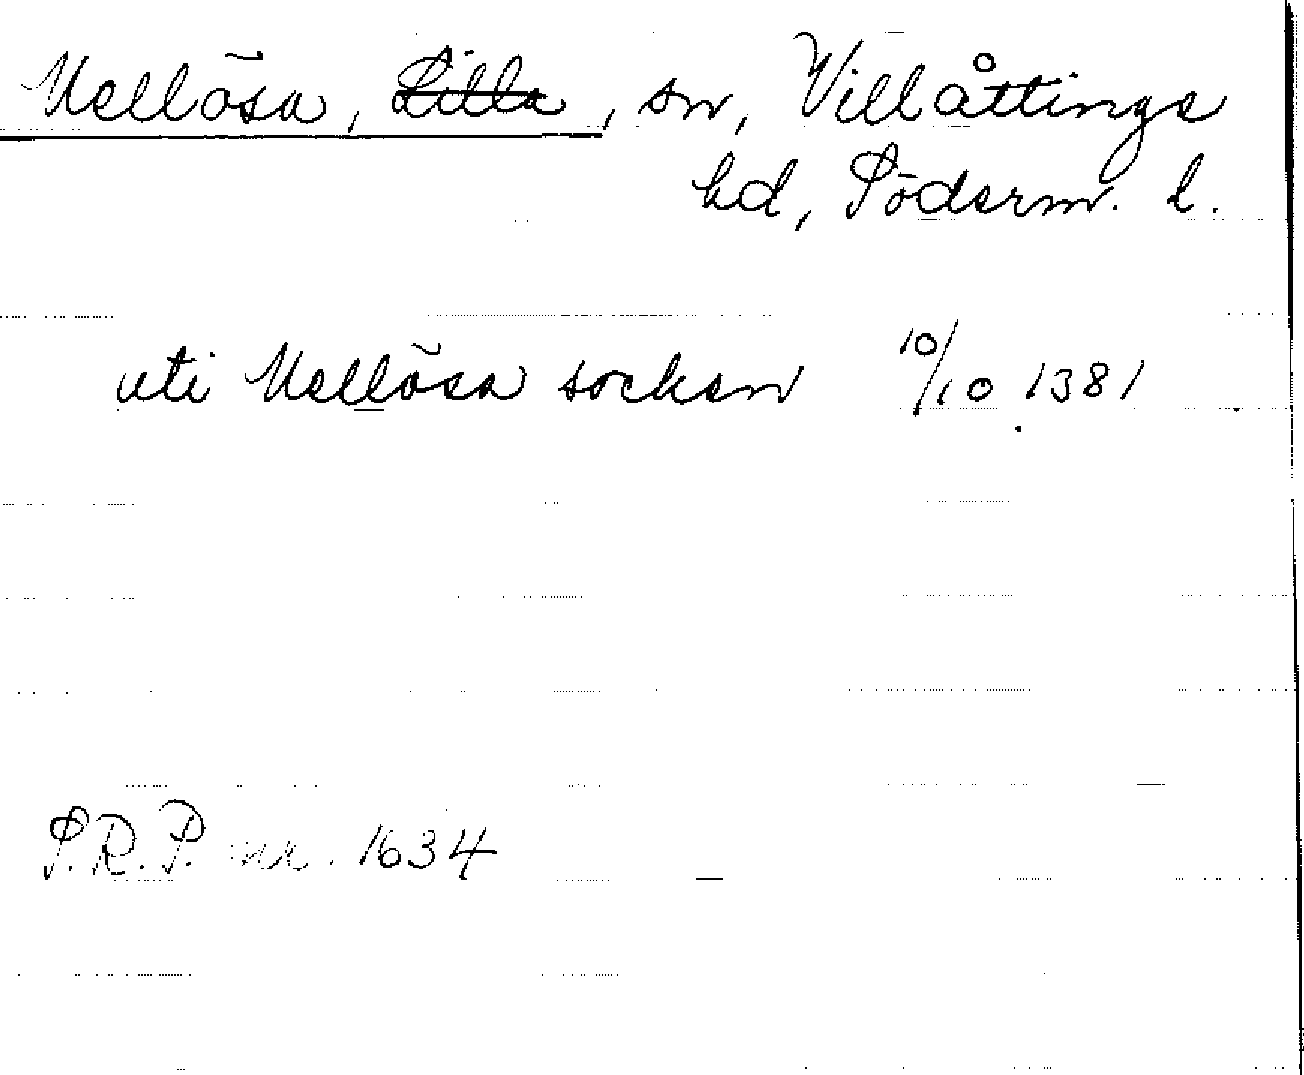 Mellösa, Lilla, sn, Villåttings
hd, Söderm. l.
uti Mellösa socken 10/10 1381
S.R.P. nr. 1634